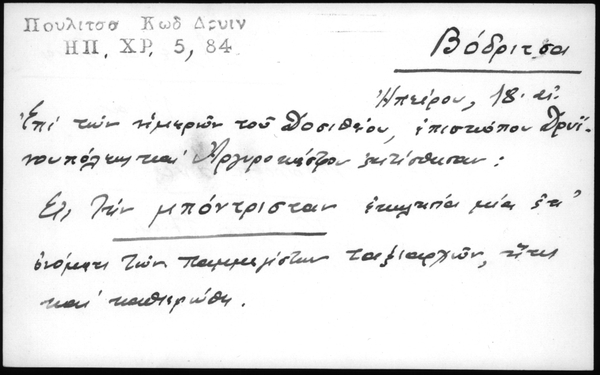 Πουλιτσα Κωδ Δρυιν
ΗΠ. ΧΡ. 5, 84
Βόδριτσα
Ἠπείρου, 18. αἰ.
Ἐπὶ τῶν ἡμερῶν τοῦ Δοσιθέου, ἐπισκόπου Δρυϊ-
νουπόλεως καὶ Ἀργυροκάστρου ἐκτίσθησαν:
Εἰς τὴν μπόντρισταν ἐκκλησία μία ἐπ'
ὀνόματι τῶν παμμεγίστων ταξιαρχῶν, ἥτις
καὶ καθιερώθη.